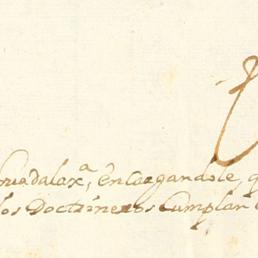 Guadalax.ª, encargandole, q
los Doctrineros Cumplan